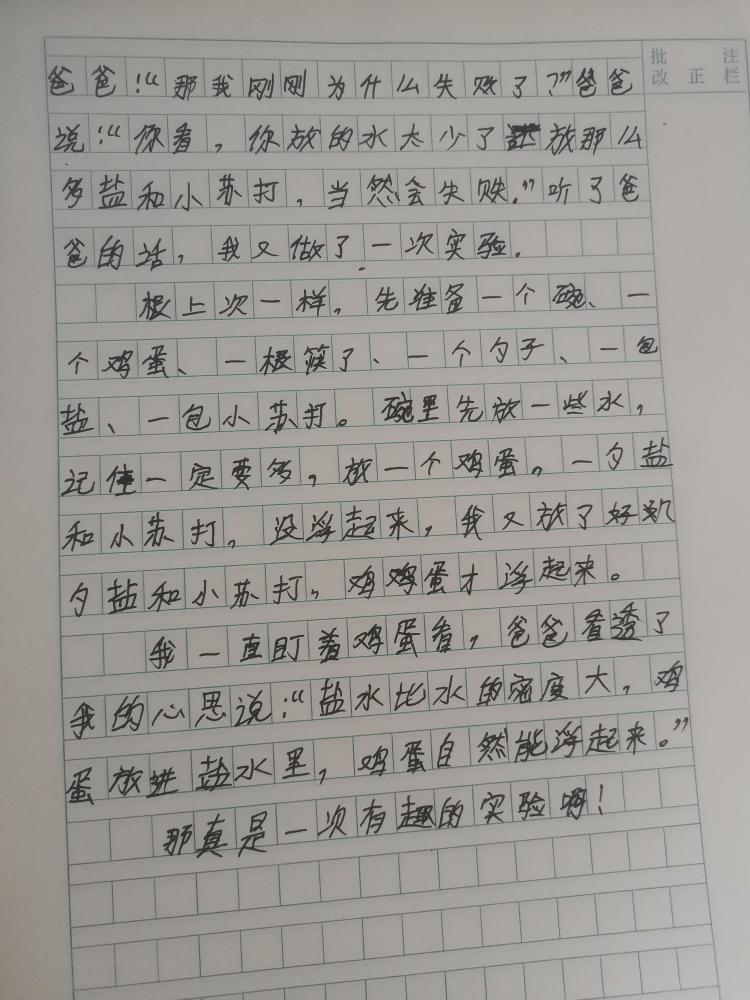 批注
改正栏
爸爸:“那我刚刚为什么失败了?”爸爸
说:“你看,你放的水太少了放那么
多盐和小苏打,当然会失败.”听了爸
爸的话,我又做了一次实验.
根上次一样,先准备一个碗、一
个鸡蛋、一根筷了、一个勺子、一包
盐、一包小苏打。碗里先放一些水,
记住一定要多,放一个鸡蛋,一勺盐
和小苏打,没浮起来,我又放了好几
勺盐和小苏打,鸡鸡蛋才浮起来。
我一直盯着鸡蛋看,爸爸看透了
我的心思说:“盐水比水的密度大,鸡
蛋放进盐水里,鸡蛋自然能浮起来。”
那真是一次有趣的实验啊!